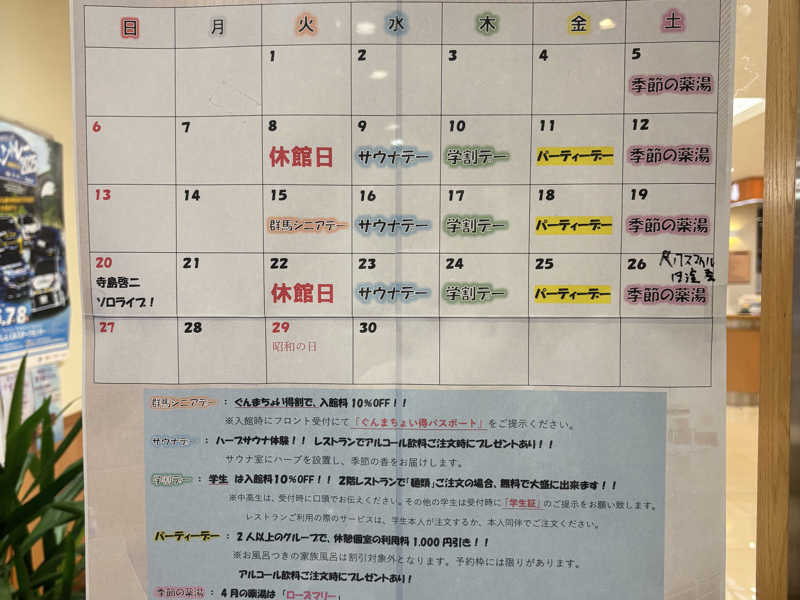 日 月 火 水 木 金 土
1 2 3 4 5
季節の薬湯
6 7 8 9 10 11 12
休館日 サウナデー 学割デー パーティーデー 季節の薬湯
13 14 15 16 17 18 19
群馬シニアデー サウナデー 学割デー パーティーデー 季節の薬湯
20 21 22 23 24 25 26
寺島啓二
ソロライブ！
休館日 サウナデー 学割デー パーティーデー 季節の薬湯
27 28 29 30
昭和の日
群馬シニアデー ： ぐんまちょい得割で、入館料10％OFF！！
※入館時にフロント受付にて「ぐんまちょい得パスポート」をご提示ください。
サウナデー ： ハーブサウナ体験！！ レストランでアルコール飲料ご注文時にプレゼントあり！！
サウナ室にハーブを設置し、季節の香をお届けします。
学割デー ： 学生 は入館料10％OFF！！ 2階レストランで「麺類」ご注文の場合、無料で大盛に出来ます！！
※中高生は、受付時に口頭でお伝えください。その他の学生は受付時に「学生証」のご提示をお願い致します。
レストランご利用の際のサービスは、学生本人が注文するか、本人同伴でご注文ください。
パーティーデー ： 2人以上のグループで、休憩個室の利用料1,000円引き！！
※お風呂つきの家族風呂は割引対象外となります。予約枠には限りがあります。
アルコール飲料ご注文時にプレゼントあり！
季節の薬湯 ： 4月の薬湯は「ローズマリー」